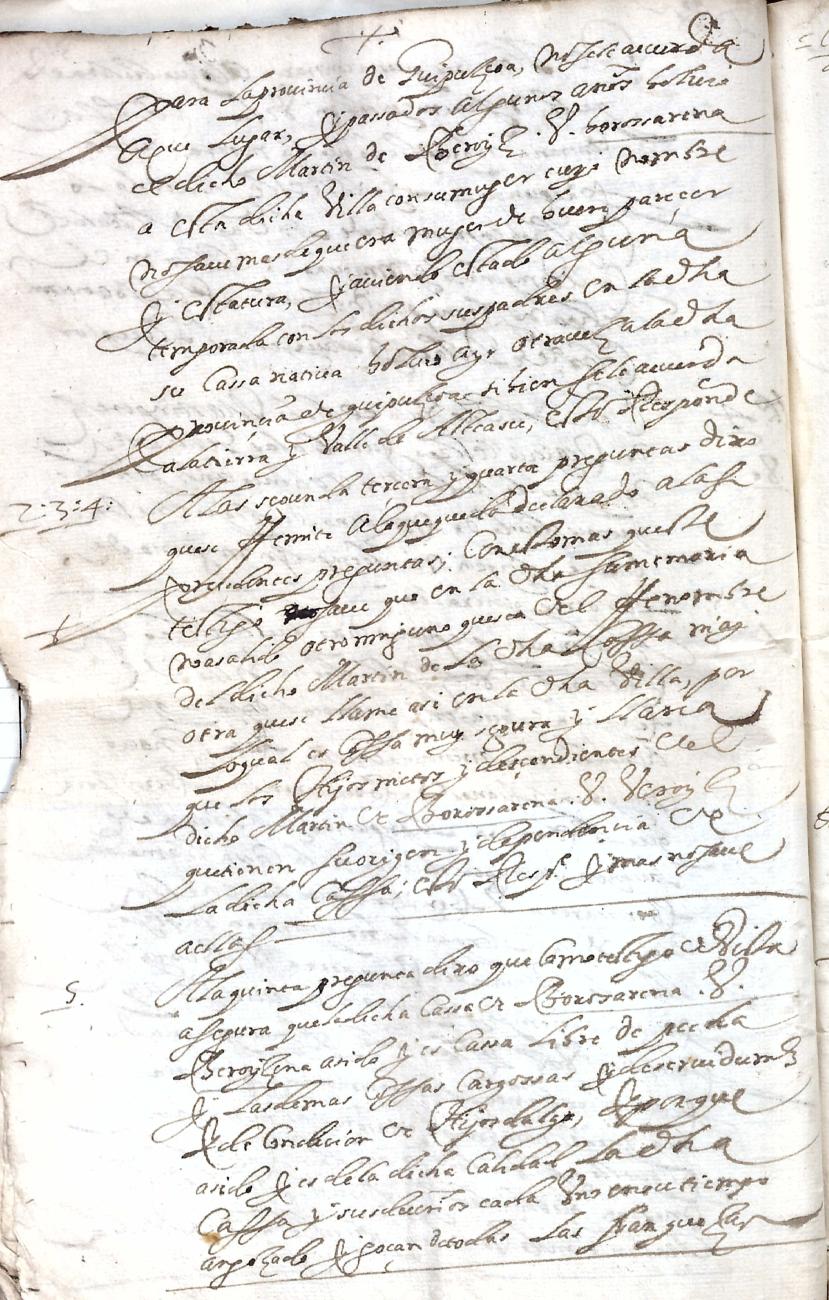 para la provincia de Guipuzcoa, no se le acuerda
a que lugar, y passados algunos años bolbio
el dicho Martin de Beroyz .V. borossarena
a esta dicha Villa con su muger cuyo nombre
no save mas de que era muger de buen parecer
y estatura, y auiendo estado alguna
temporada con los dichos sus padres en la dha
su Cassa natiua bolbio a yr otra uez a la dha
Provincia de guipuzcoa si bien se le acuerda
a la tierra y Valle de, esto Responde
2:3:4: A las segunda tercera y quarta preguntas dixo
que se Remite a lo que queda declarado a las
precedentes preguntas; Con esto mas que este
testigo save que en la dha su memoria
no a auido otro ninguno que sea del Renombre
del dicho Martin de la dha Cassa ni ay
otra que se llame asi en la dha Villa, por
lo qual es cossa muy segura y llana
que los Hijos nietos y descendientes del
dicho Martin de Borossarena .V. Veroyz
que tienen su origen y dependencia de
la dicha Cassa; esto Resp.e y mas no saue
a ellas
5. A la quinta pregunta dixo que como testigo de Vista
asegura que la dicha Cassa de Borossarena .V.
Beroyzena a sido y es Cassa libre de pecha
y las demas cossas cargossas y de seruidumbre
y de Condicion de Hijosdalgo, y porque
a sido y es de la dicha Calidad la dha
Cassa y sus dueños cada Uno en su tiempo
an gozado y goçan de todas las franquezas